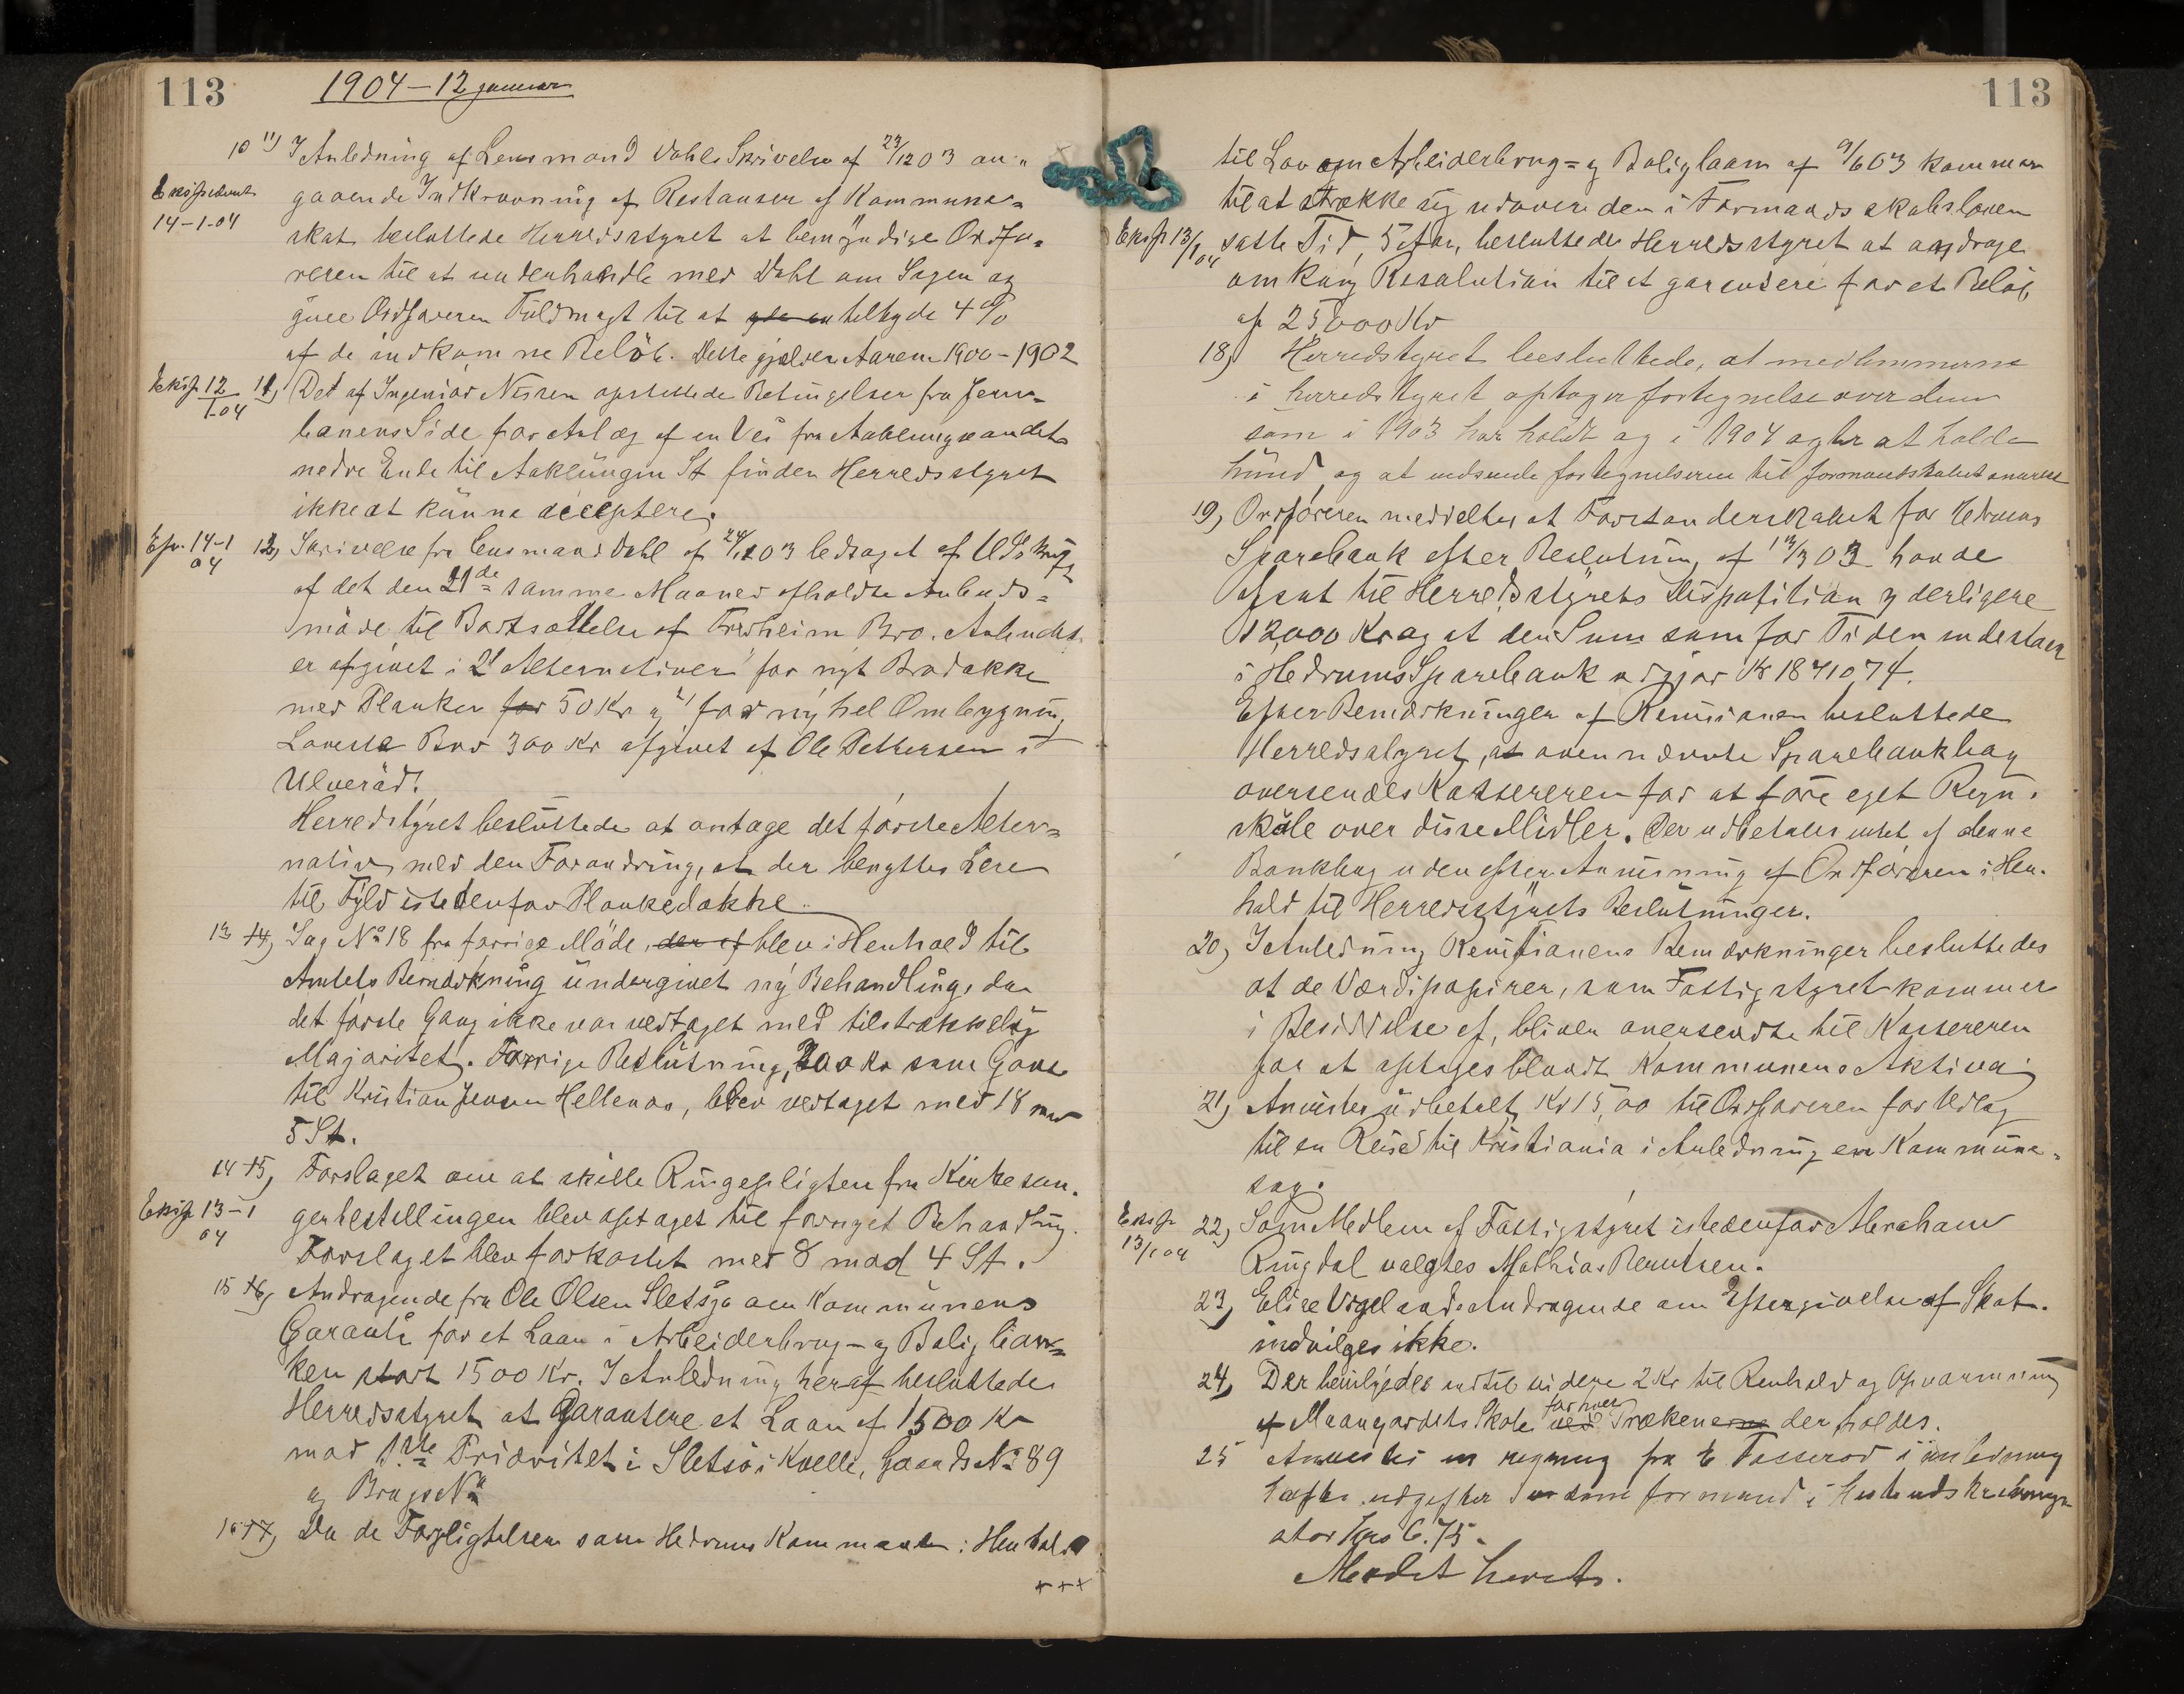 113
1904 – 12 januar
10 11) I Anledning af Lensmand Dahls Skrivelse af 22/12 03 an-
Ekspederet
14-1-04
gaaende Indkrævning af Restanser af Kommune-
skat besluttede Herredsstyret at bemyndige Ordfø-
reren til at underhandle med Dahl om Sagen og
give Ordføreren Fuldmagt til at tilbyde 4 %
af de indkomne Beløb. Dette gjælder Aarene 1900 – 1902
Eksp 12/1-04
11) Det af Ingeniør Nissen opstillede Betingelser fra Jern-
banens Side for Anlæg af en Vei fra Aaklungvandets
nedre Ende til Aaklungen St finder Herredsstyret
ikke at kunne acceptere.
Eksp. 14-1 04
12) Skrivelse fra Lensmand Dahl af 24/12 03 ledsaget af Udskrift
af det den 21de samme Maaned afholdte Anbuds-
møde til Bortsættelse af Fresheim Bro. Anbudet
er afgivet i 2 Alternativer for nyt Brodække
med Planker for 50 Kr og for ny hel Ombygning
Bro 300 Kr afgivet af Ole Pettersen i
Ulverød.
Herredstyret besluttede at antage det første Alter-
nativ med den Forandring, at der benyttes Lere
til Fyld istedenfor Plankedække
13 14) Sag No 18 fra forrige Møde, der af blev i Henhold til
Amtets Bemærkning undergivet ny Behandling, da
det første Gang ikke var vedtaget med tilstrækkelig
Majoritet. Forrige Beslutning, 200 Kr som Gave
til Kristian Jensen Hellenes, blev vedtaget med 18 mod
5 St.
14 15) Forslaget om at skille Ringepligten fra Kirkesan-
Eksp 13-1 04
gerbestillingen blev optaget til fornyet Behandling.
Forslaget blev forkastet med 8 mod 4 St.
15 16) Andragende fra Ole Olsen Sletsjø om Kommunens
Garanti for et Laan i Arbeiderbrug- og Boligban-
ken stort 1500 Kr. I Anledning heraf besluttede
Herredsstyret at garantere et Laan af 1500 Kr
mod 1ste Prioritet i Sletsjø i Kvelle, Gaards No 89
og Brugs No
16 17) Da de Forpligtelser som Hedrums Kommune i Henhold
+++
113
til Lov om Arbeiderbrug- og Boliglaan af 9/6 03 kommer
til at strække sig udover den i Formandsskabsloven
Eksp 13/1 04
satte Tid, 5 Aar, besluttede Herredsstyret at andrage
om Kong Resolution til at garantere for et Beløb
af 25000 Kr
18) Herredstyret besluttede, at medlemmerne
i herredstyret optager fortegnelse over dem
som i 1903 har holdt og i 1904 agter at holde
hund, og at indsende fortegnelserne til formandskabet snarest
19) Ordføreren meddelte, at Forstanderskabet for Hedrums
Sparebank efter Beslutning af 12/3 03 havde
afsat til Herredsstyrets Disposition yderligere
12,000 Kr og at den Sum som for Tiden indestaar
i Hedrums Sparebank udgjør Kr 18710,74.
Efter Bemærkninger af Revisionen besluttede
Herredsstyret, at ovennævnte Sparebankbog
oversendes Kassereren for at føre eget Regn-
skab over disse Midler. Der udbetales intet af denne
Bankbog uden efter Anvisning af Ordføreren i Hen-
hold til Herredsstyrets Beslutninger.
20) I Anledning Revisionens Bemærkninger besluttedes
at de Værdipapirer, som Fattigstyret kommer
i Besiddelse af, bliver oversendte til Kassereren
for at optages blandt Kommunens Aktiva.
21) Anvistes udbetalt Kr 15,00 til Ordføreren for Udlæg
til en Reise til Kristiania i Anledning en Kommune-
sag.
Eksp 13/1 04
22) Som Medlem af Fattigstyret istedenfor Abraham
Ringdal valgtes Mathias Berntsen.
23) Elise Andragende om Eftergivelse af Skat
indvilges ikke.
24) Der bevilgedes indtil videre 2 Kr til Renhold og Opvarmning
af Skole ved for hver Prækenerne der holdes.
25 Anvistes en regning fra E Tosserød i anledning
havte udgifter som formand i
stor Kr 6.75.
Mødet hævet.